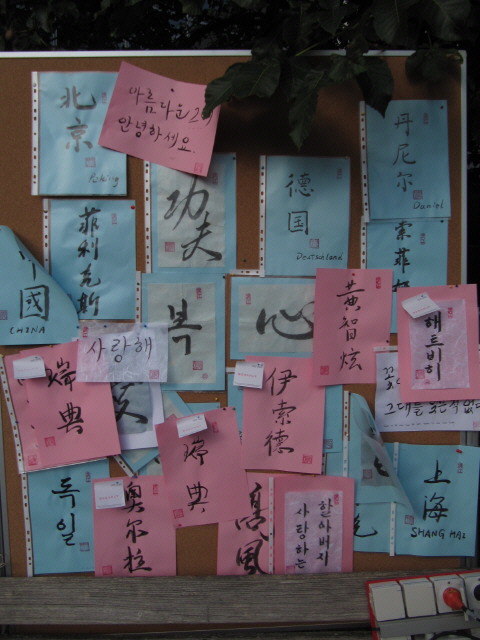 北京
Peking
아름다운
안녕하세요.
功夫
德国
Deutschland
丹尼尔
Daniel
菲利克斯
中國
CHINA
索菲
복
心
黄智炫
사랑해
瑞典
伊索德
瑞典
독일
奥尔拉
高風
할아버지
사랑하는
上海
SHANG HAI